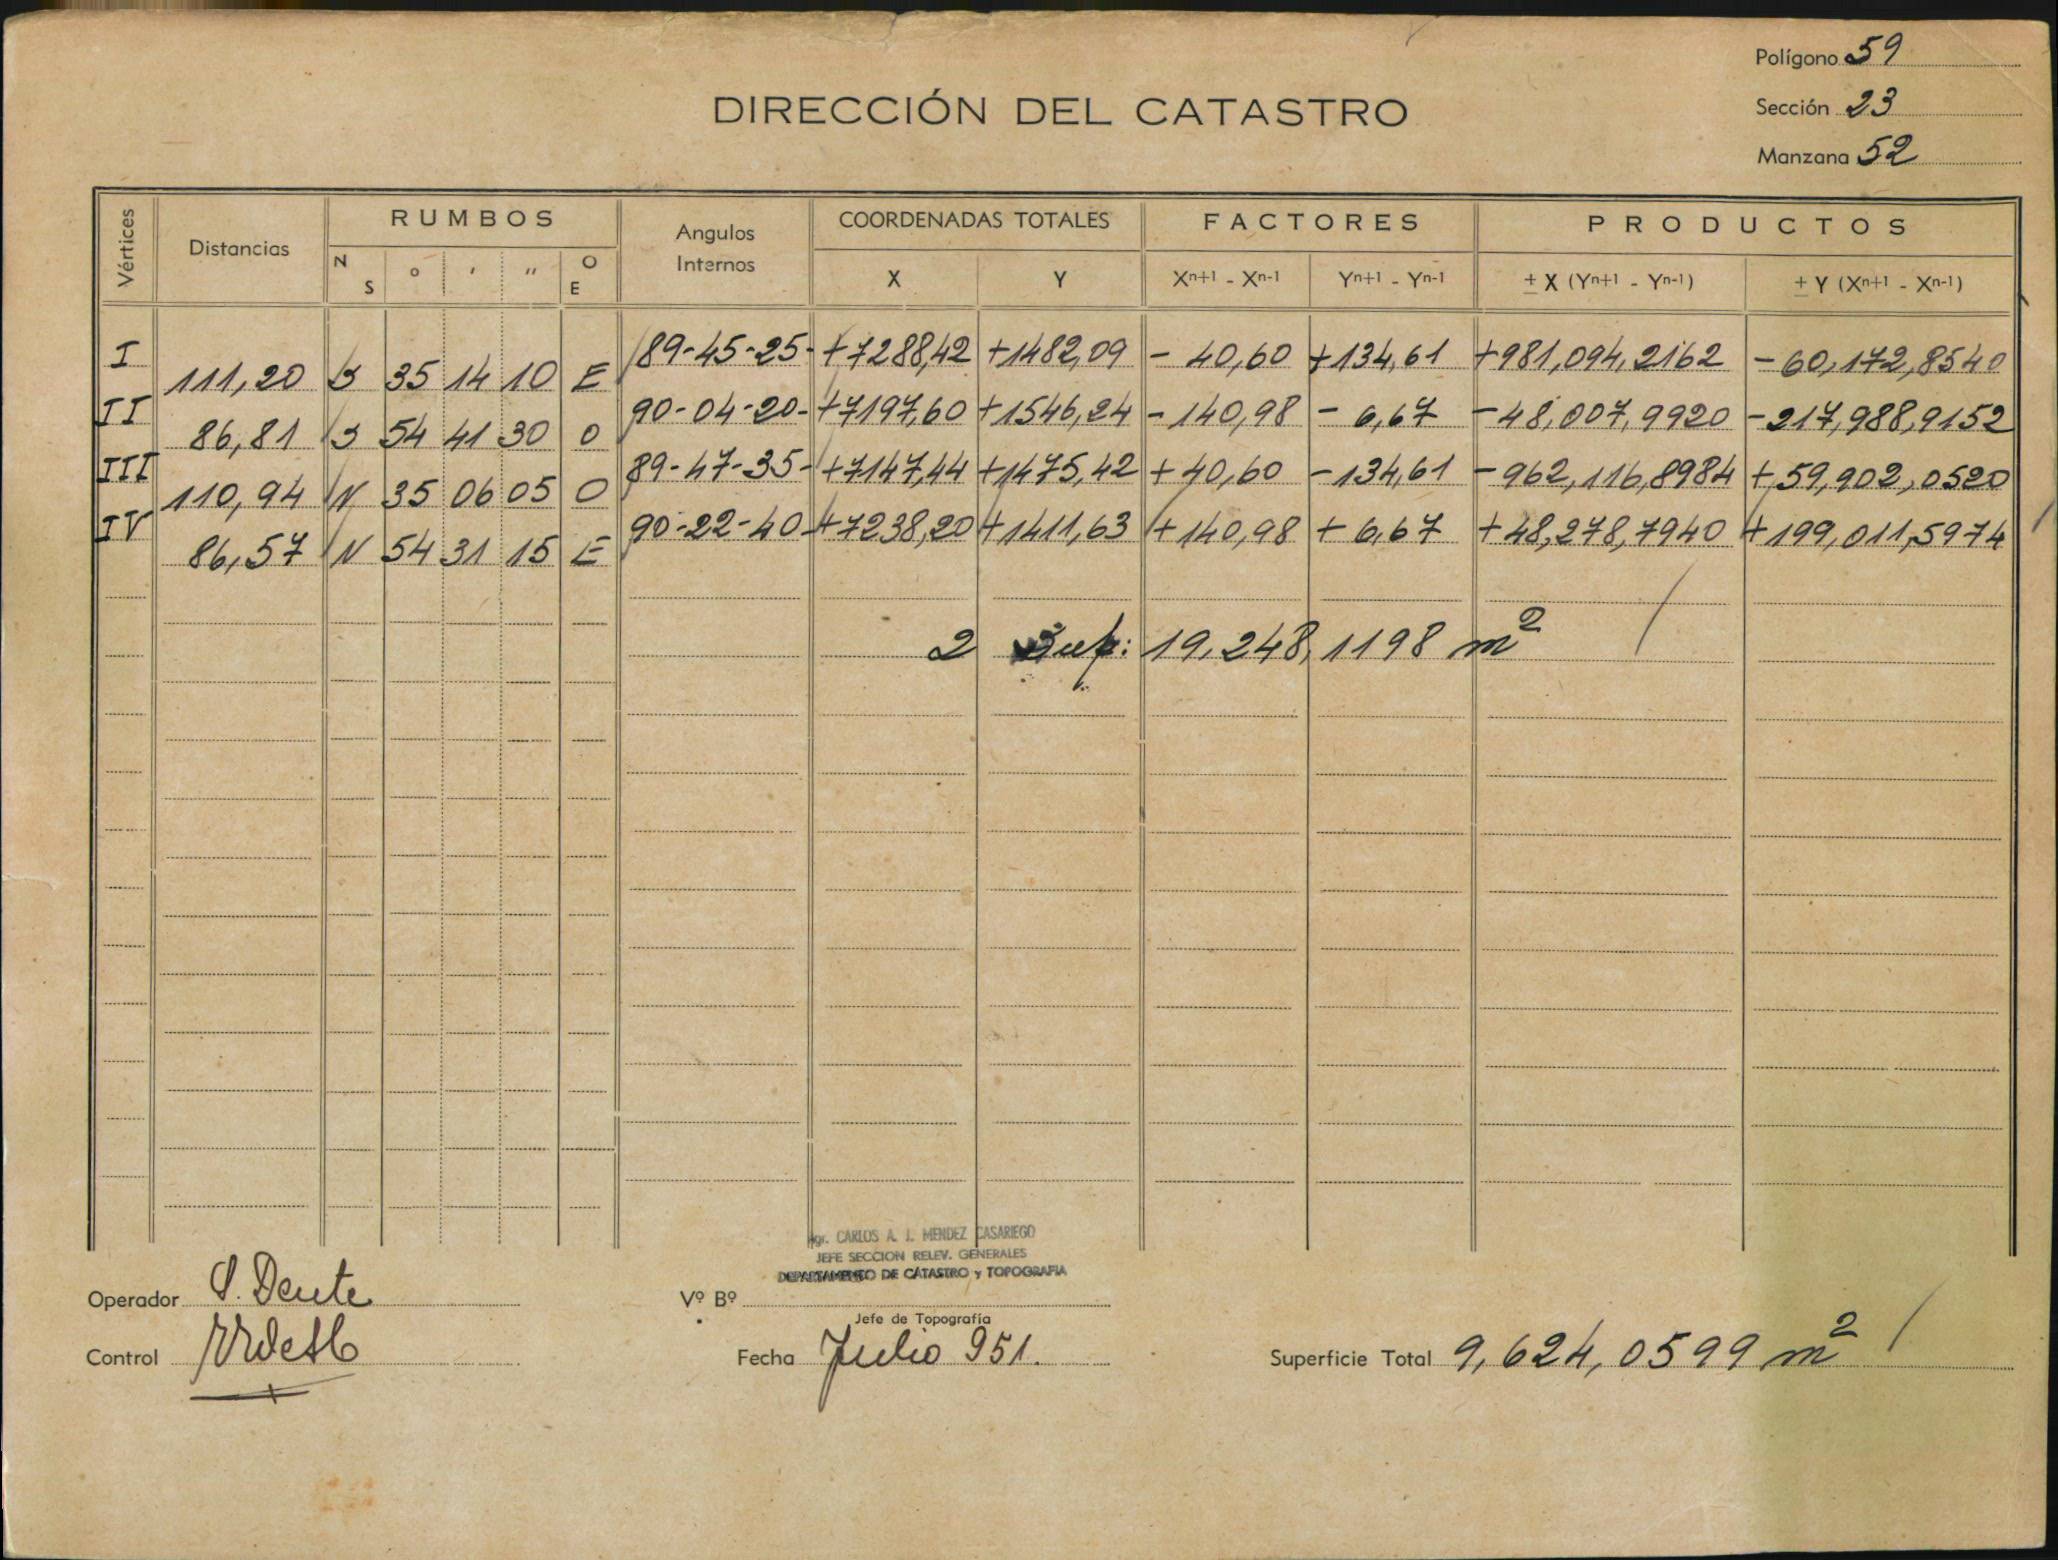 Polígono 59
DIRECCIÓN DEL CATASTRO
Sección 23
Manzana 52
Vértices Distancias RUMBOS Angulos Internos COORDENADAS TOTALES FACTORES PRODUCTOS
N S ° ' " O E X Y Xⁿ⁺¹ - Xⁿ⁻¹ Yⁿ⁺¹ - Yⁿ⁻¹ ± X (Yⁿ⁺¹ - Yⁿ⁻¹) ± Y (Xⁿ⁺¹ - Xⁿ⁻¹)
I 89-45-25- +7288,42 +1482,09 - 40,60 +134,61 +981,094,2162 -60,172,8540
111,20 S 35 14 10 E
II 90-04-20- +7197,60 +1546,24 -140,98 - 6,67 -48,007,9920 -217,988,9152
86,81 S 54 41 30 O
III 89-47-35- +7147,44 +1475,42 +40,60 -134,61 -962,116,8984 +59,902,0520
110,94 N 35 06 05 O
IV 90-22-40- +7238,20 +1411,63 +140,98 + 6,67 +48,278,7940 +199,011,5974
86,57 N 54 31 15 E
2 Sup: 19,248,1198 m²
Agr. CARLOS A. J. MENDEZ CASARIEGO
JEFE SECCION RELEV. GENERALES
DEPARTAMENTO DE CATASTRO y TOPOGRAFIA
Operador S. Dente
Vº Bº
Jefe de Topografía
Control
Fecha Julio 951.
Superficie Total 9,624,0599 m²